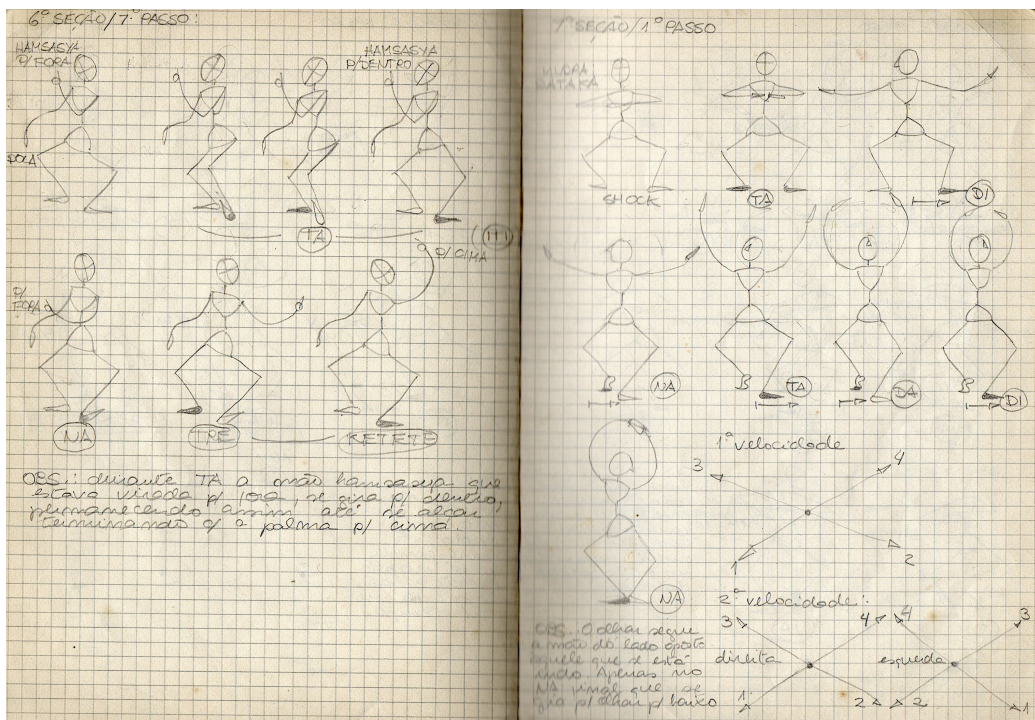 6ª SEÇÃO/7º PASSO:
HAMSASYA
P/FORA
HAMSASYA
P/DENTRO
DOLA
TA
HI
P/CIMA
P/
FORA
NA
TRE
KETETE
OBS.: durante TA a mão hamsasya que
estava virada p/ fora, se gira p/ dentro,
permanecendo assim até se alçar
terminando c/ a palma p/ cima.
7ª SEÇÃO/1º PASSO
MUDRA
KATAKA
SHOCK
TA
DI
NA
TA
DA
DI
NA
1ª velocidade
3
4
2
1
2ª velocidade:
3
4
4
3
direita
esquerda
1
2
2
1
OBS.: O olhar segue
a mão do lado oposto
àquele que se está
indo. Apenas no
NA final que se
p/ olhar p/ baixo